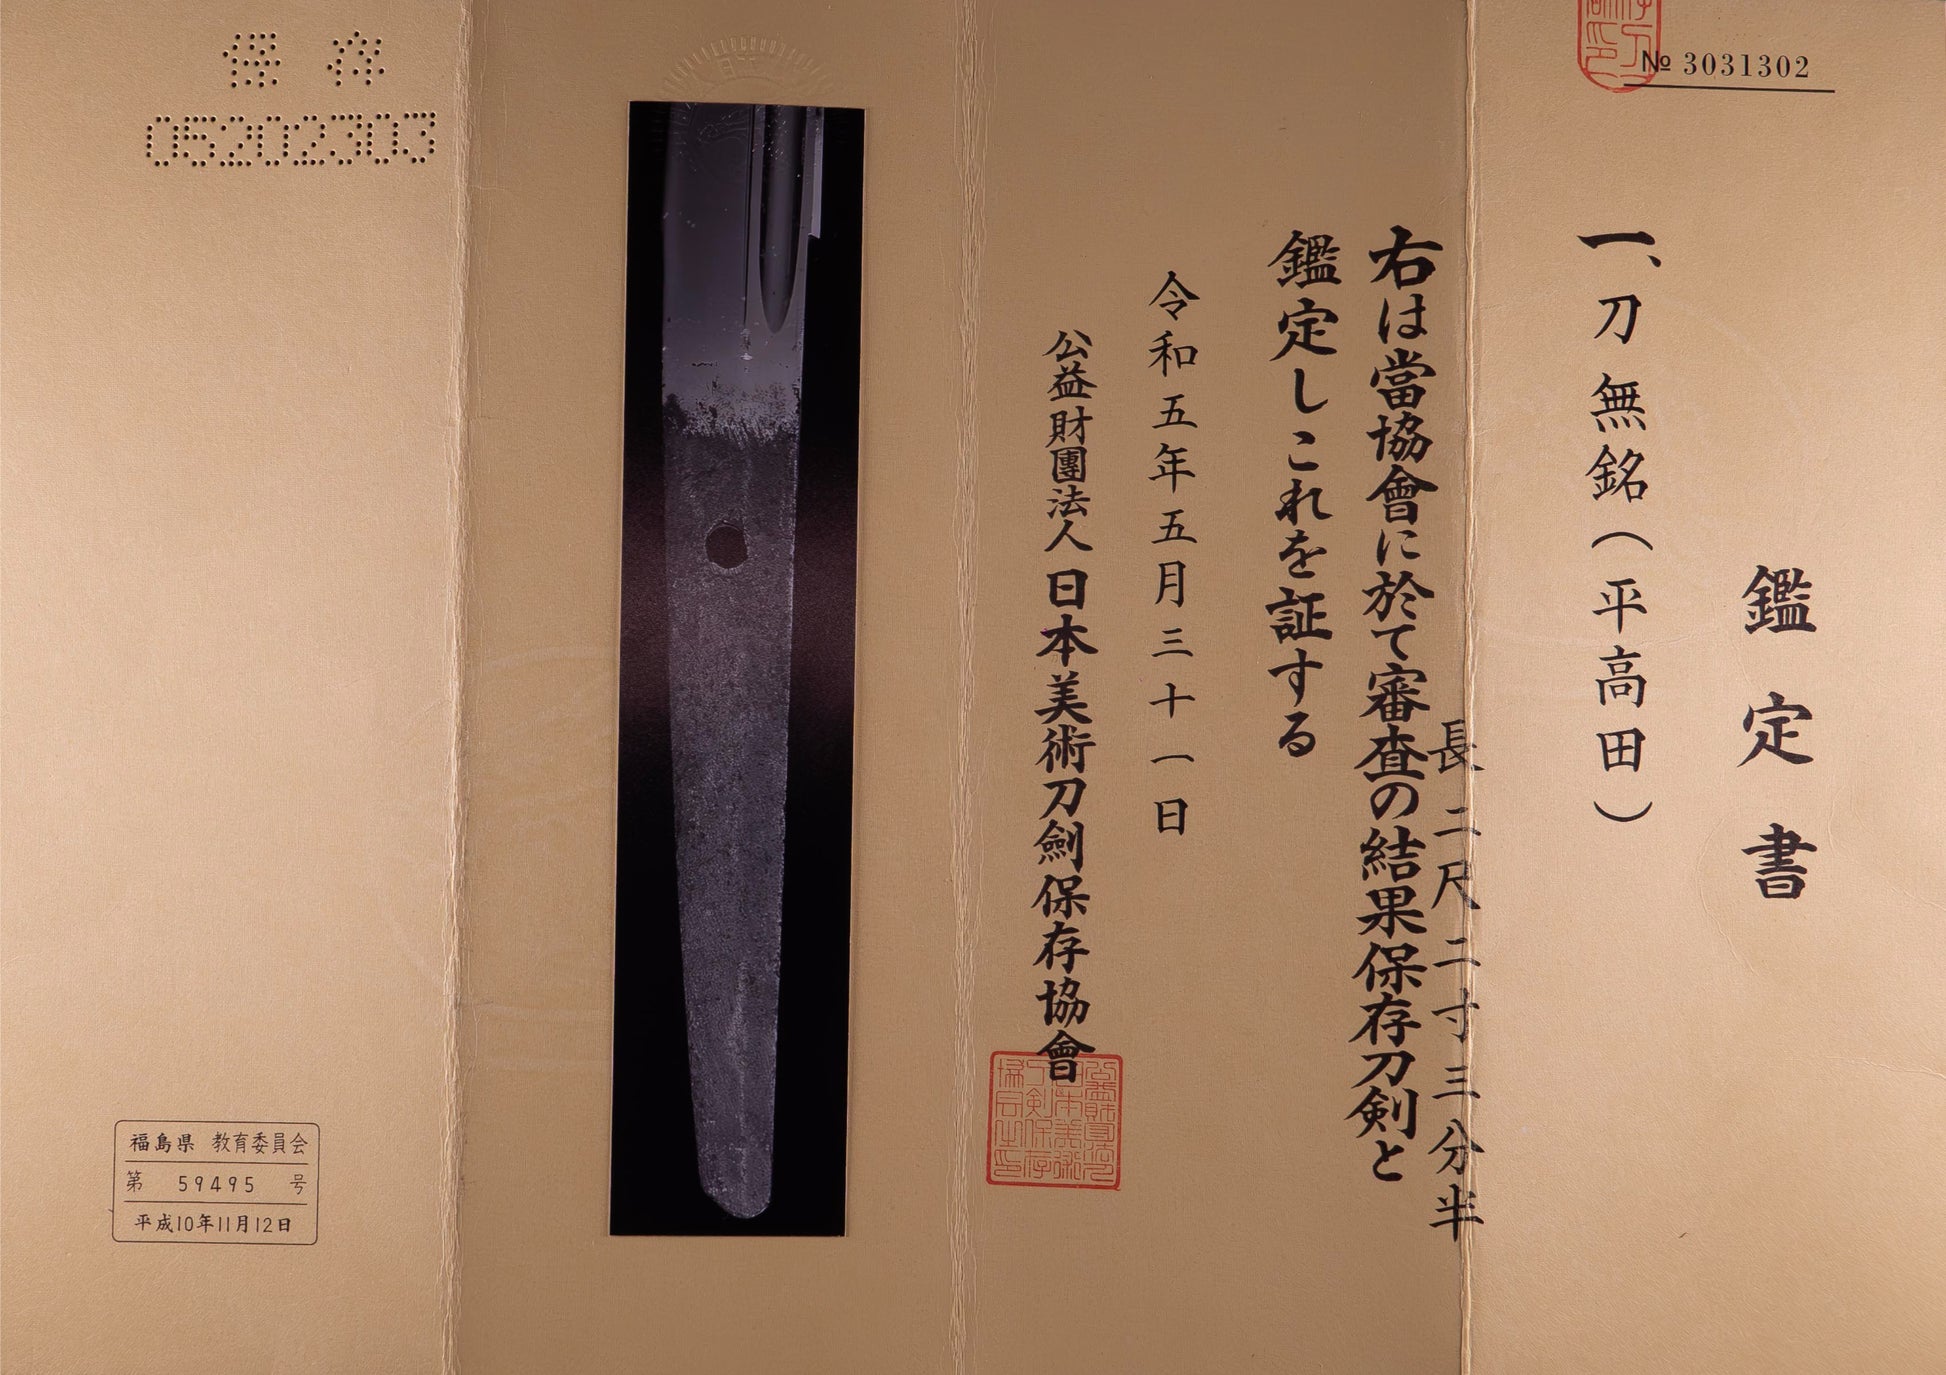 鑑定書
№ 3031302
一、刀 無銘（平高田）
長 二尺二寸三分半
右は當協會に於て審査の結果保存刀剣と
鑑定しこれを証する
令和五年五月三十一日
公益財團法人 日本美術刀劍保存協會
保存
05202303
福島県 教育委員会
第 59495 号
平成10年11月12日